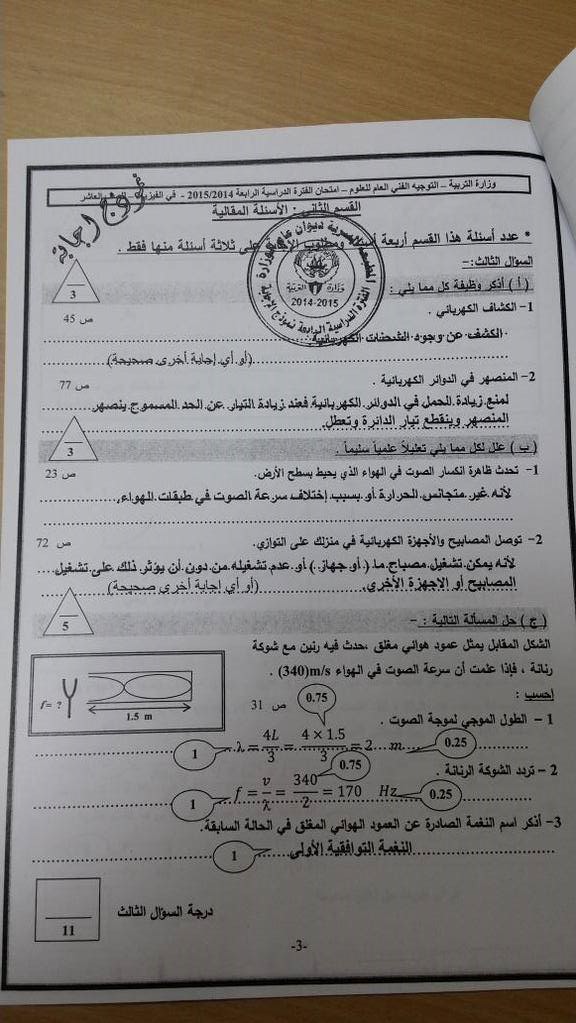 نموذج اجابة
وزارة التربية – التوجيه الفني العام للعلوم – امتحان الفترة الدراسية الرابعة 2015/2014 - في الفيزياء - العاشر
القسم الثاني : الأسئلة المقالية
* عدد أسئلة هذا القسم أربعة على ثلاثة أسئلة منها فقط .
السؤال الثالث:-
( أ ) أذكر وظيفة كل مما يلي :
3
وزارة التربية
2014-2015
1- الكشاف الكهربائي .
ص 45
الكشف عن وجود الشحنات الكهربائية
(أو أي إجابة أخرى صحيحة)
2- المنصهر في الدوائر الكهربائية .
ص 77
لمنع زيادة الحمل في الدوائر الكهربائية فعند زيادة التيار عن الحد المسموح ينصهر
المنصهر وينقطع تيار الدائرة وتعطل.
3
( ب ) علل لكل مما يلي تعليلاً علمياً سليماً.
1- تحدث ظاهرة انكسار الصوت في الهواء الذي يحيط بسطح الأرض.
ص 23
لأنه غير متجانس الحرارة أو بسبب إختلاف سرعة الصوت في طبقات الهواء.
2- توصل المصابيح والأجهزة الكهربائية في منزلك على التوازي.
ص 72
لأنه يمكن تشغيل مصباح ما ( أو جهاز ) أو عدم تشغيله من دون أن يؤثر ذلك على تشغيل
المصابيح أو الاجهزة الأخرى. (أو أي إجابة أخرى صحيحة)
5
( ج ) حل المسألة التالية : -
الشكل المقابل يمثل عمود هوائي مغلق ،حدث فيه رنين مع شوكة
رنانة ، فإذا علمت أن سرعة الصوت في الهواء (340)m/s .
f= ?
1.5 m
احسب :
ص 31
0.75
1 – الطول الموجي لموجة الصوت .
1 λ = 4L/3 = 4 × 1.5/3 = 2 m 0.25
0.75
2 – تردد الشوكة الرنانة .
1 f = v/λ = 340/2 = 170 Hz 0.25
3- أذكر اسم النغمة الصادرة عن العمود الهوائي المغلق في الحالة السابقة.
النغمة التوافقية الأولى
1
درجة السؤال الثالث
11
-3-